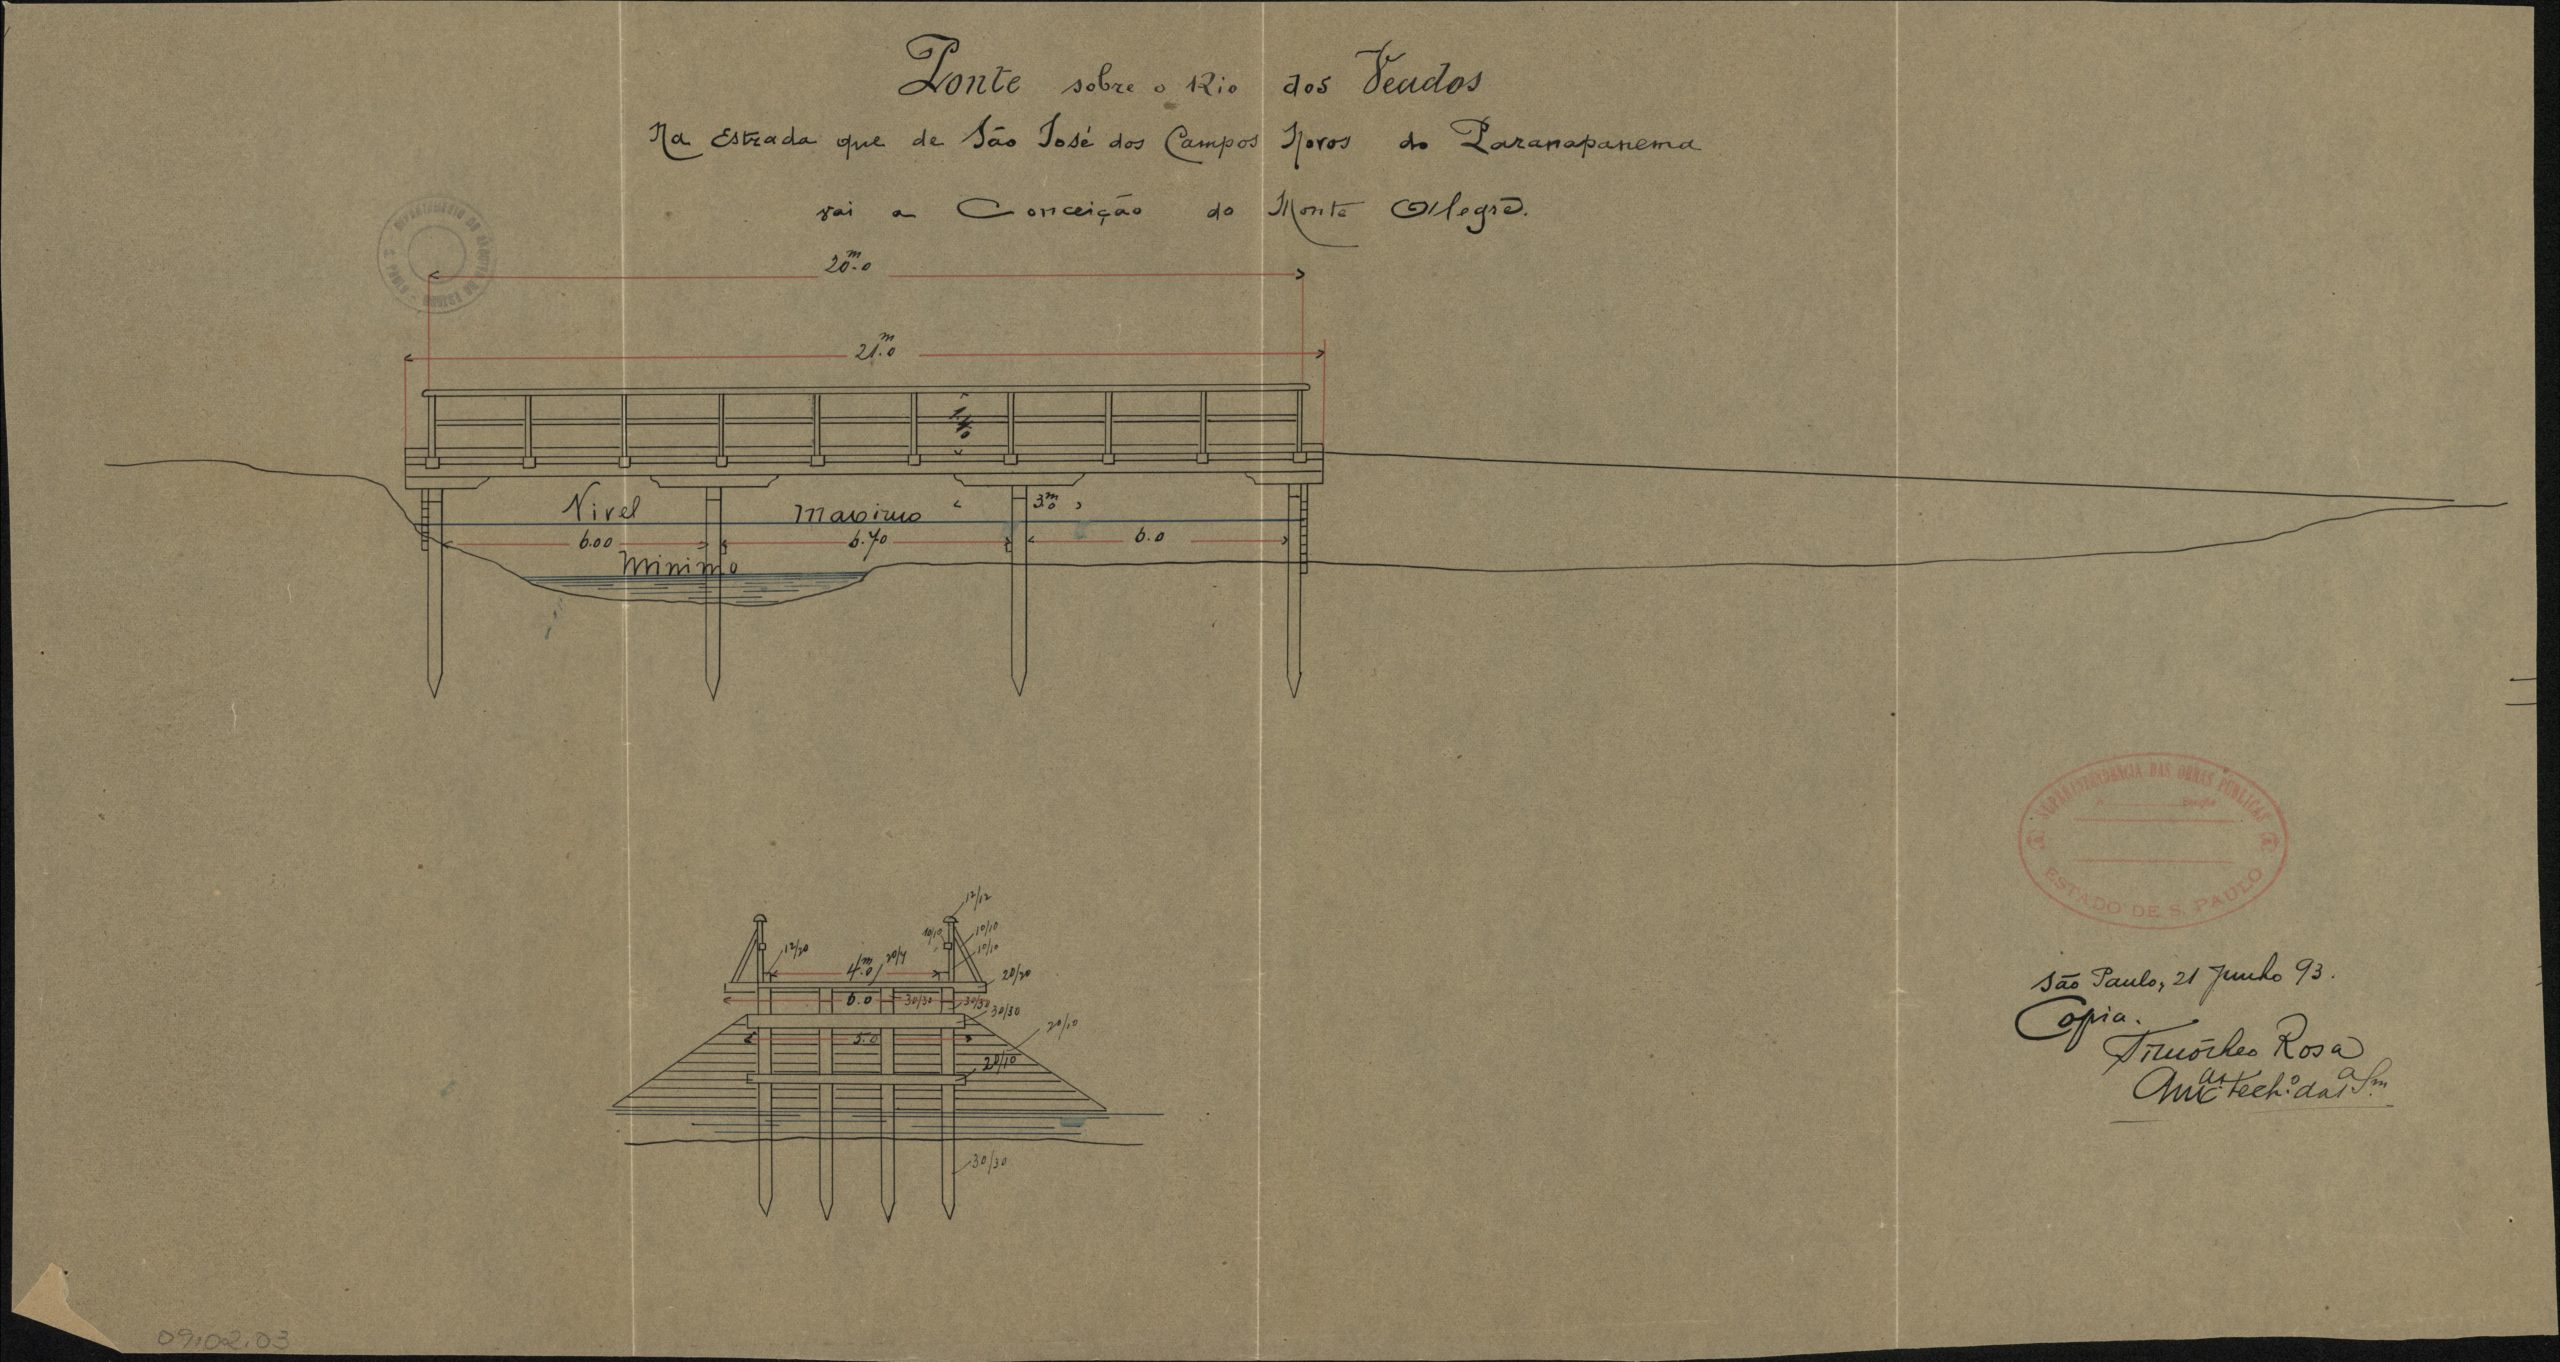 Ponte sobre o Rio dos Veados
Na Estrada que de São José dos Campos Novos do Paranapanema
vai a Conceição do Monte Alegre.
DEPARTAMENTO DO ARQUIVO DO ESTADO
S. PAULO
20.m0
21.m0
Nivel Maximo
3m0
6.00 6.70 6.0
Minimo
12/12
10/10 10/10
12/20 4.m0 20/7 10/10
20/20
6.0 30/30 30/30
30/30
20/10
5.0
20/10
30/30
SUPERINTENDENCIA DAS OBRAS PUBLICAS
ESTADO DE S. PAULO
São Paulo, 21 Junho 93.
Copia.
Timótheo Rosa
09.02.03